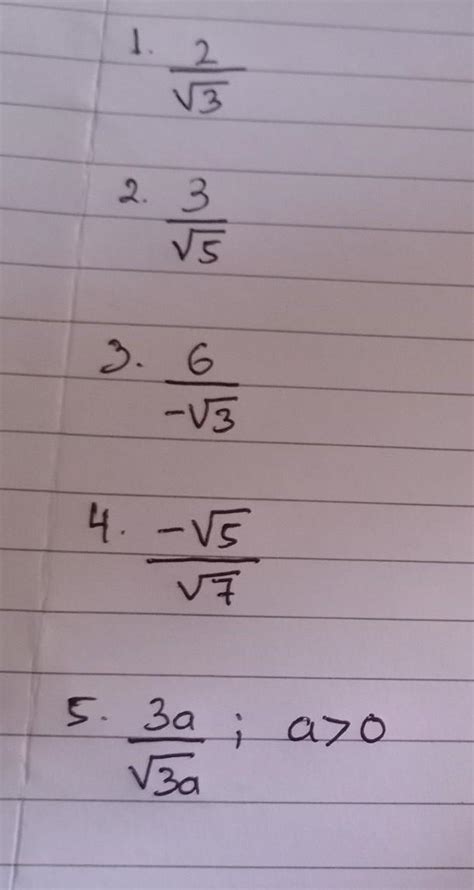 1. 2/√3
2. 3/√5
3. 6/-√3
4. -√5/√7
5. 3a/√3a ; a>0